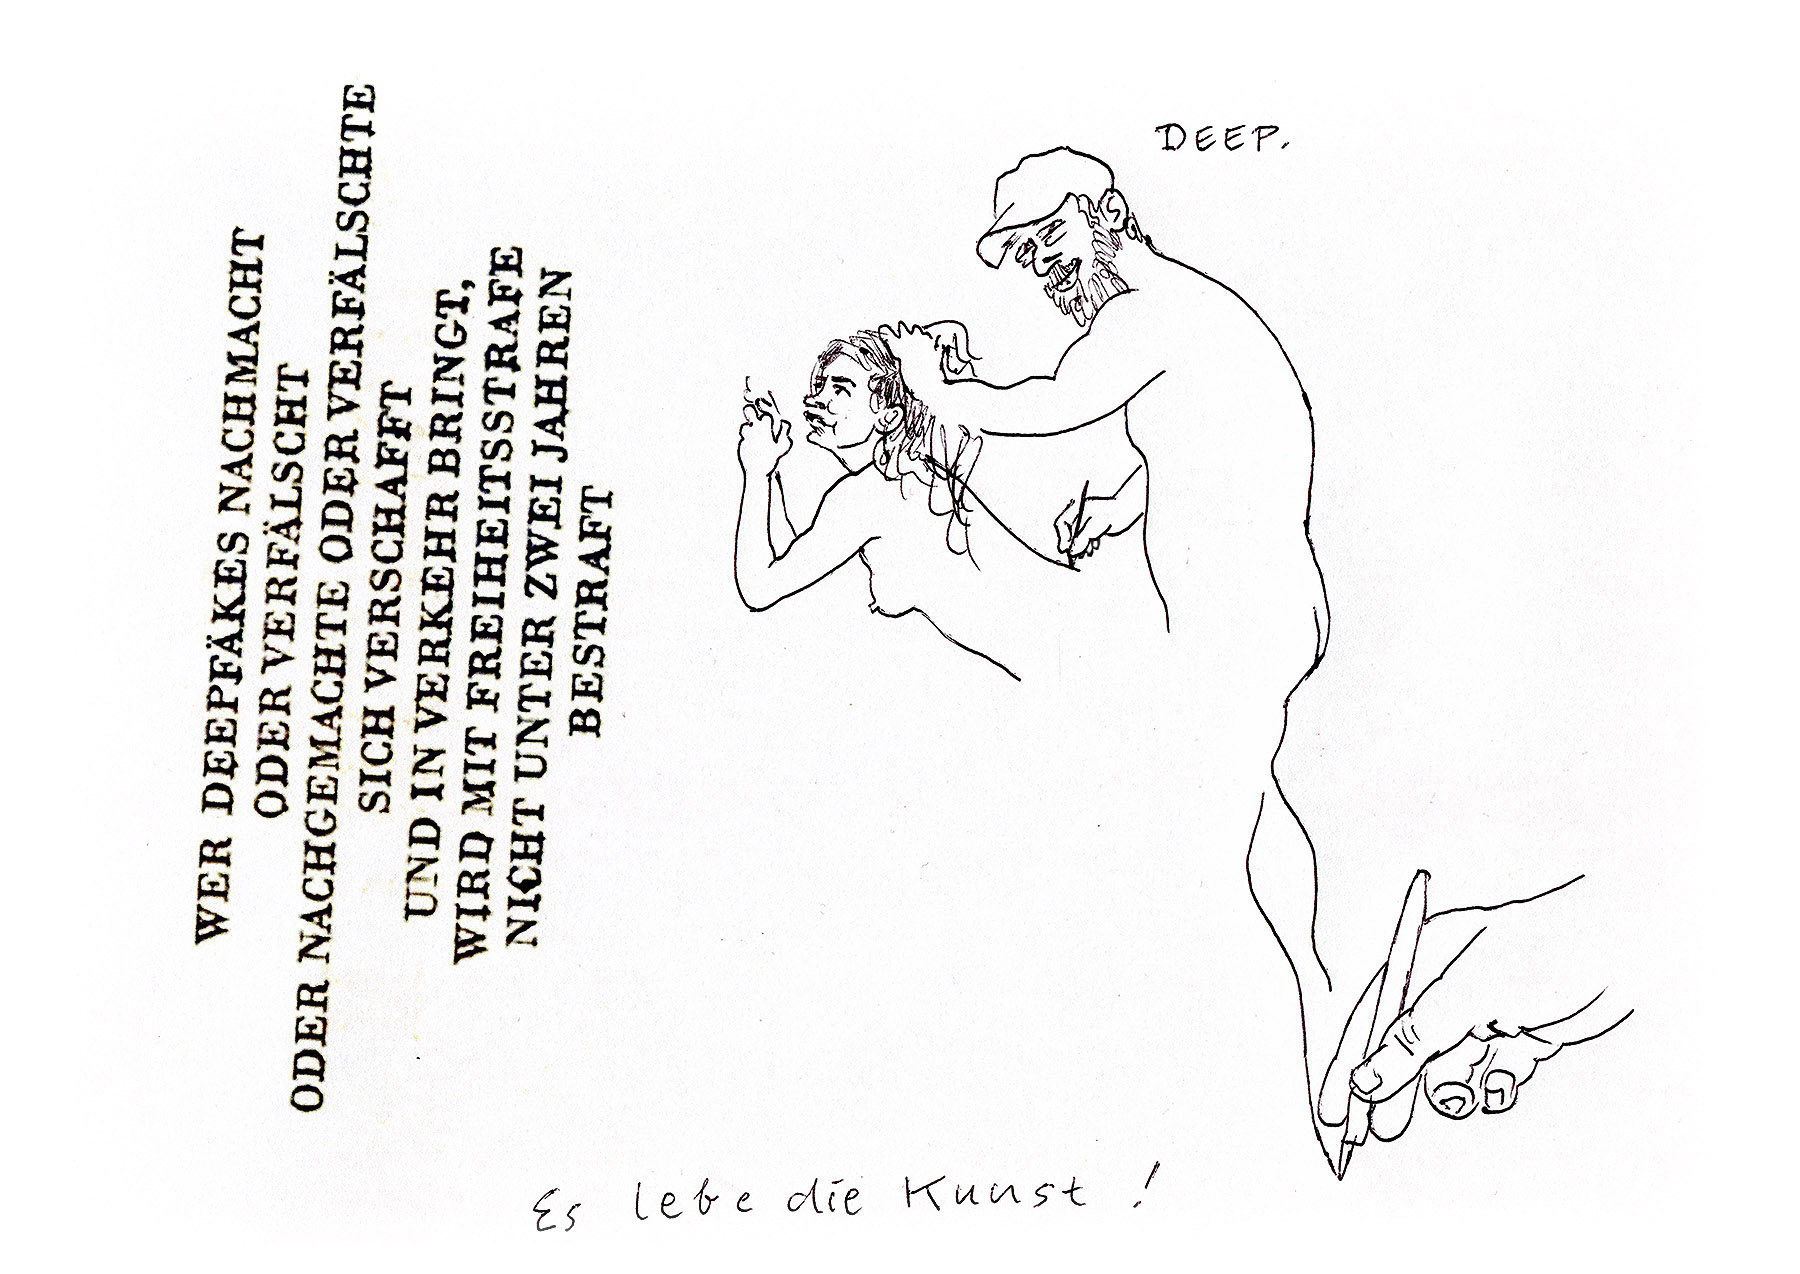 WER DEEPFÄKES NACHMACHT
ODER VERFÄLSCHT
ODER NACHGEMACHTE ODER VERFÄLSCHTE
SICH VERSCHAFFT
UND IN VERKEHR BRINGT,
WIRD MIT FREIHEITSSTRAFE
NICHT UNTER ZWEI JAHREN
BESTRAFT
DEEP.
Es lebe die Kunst !